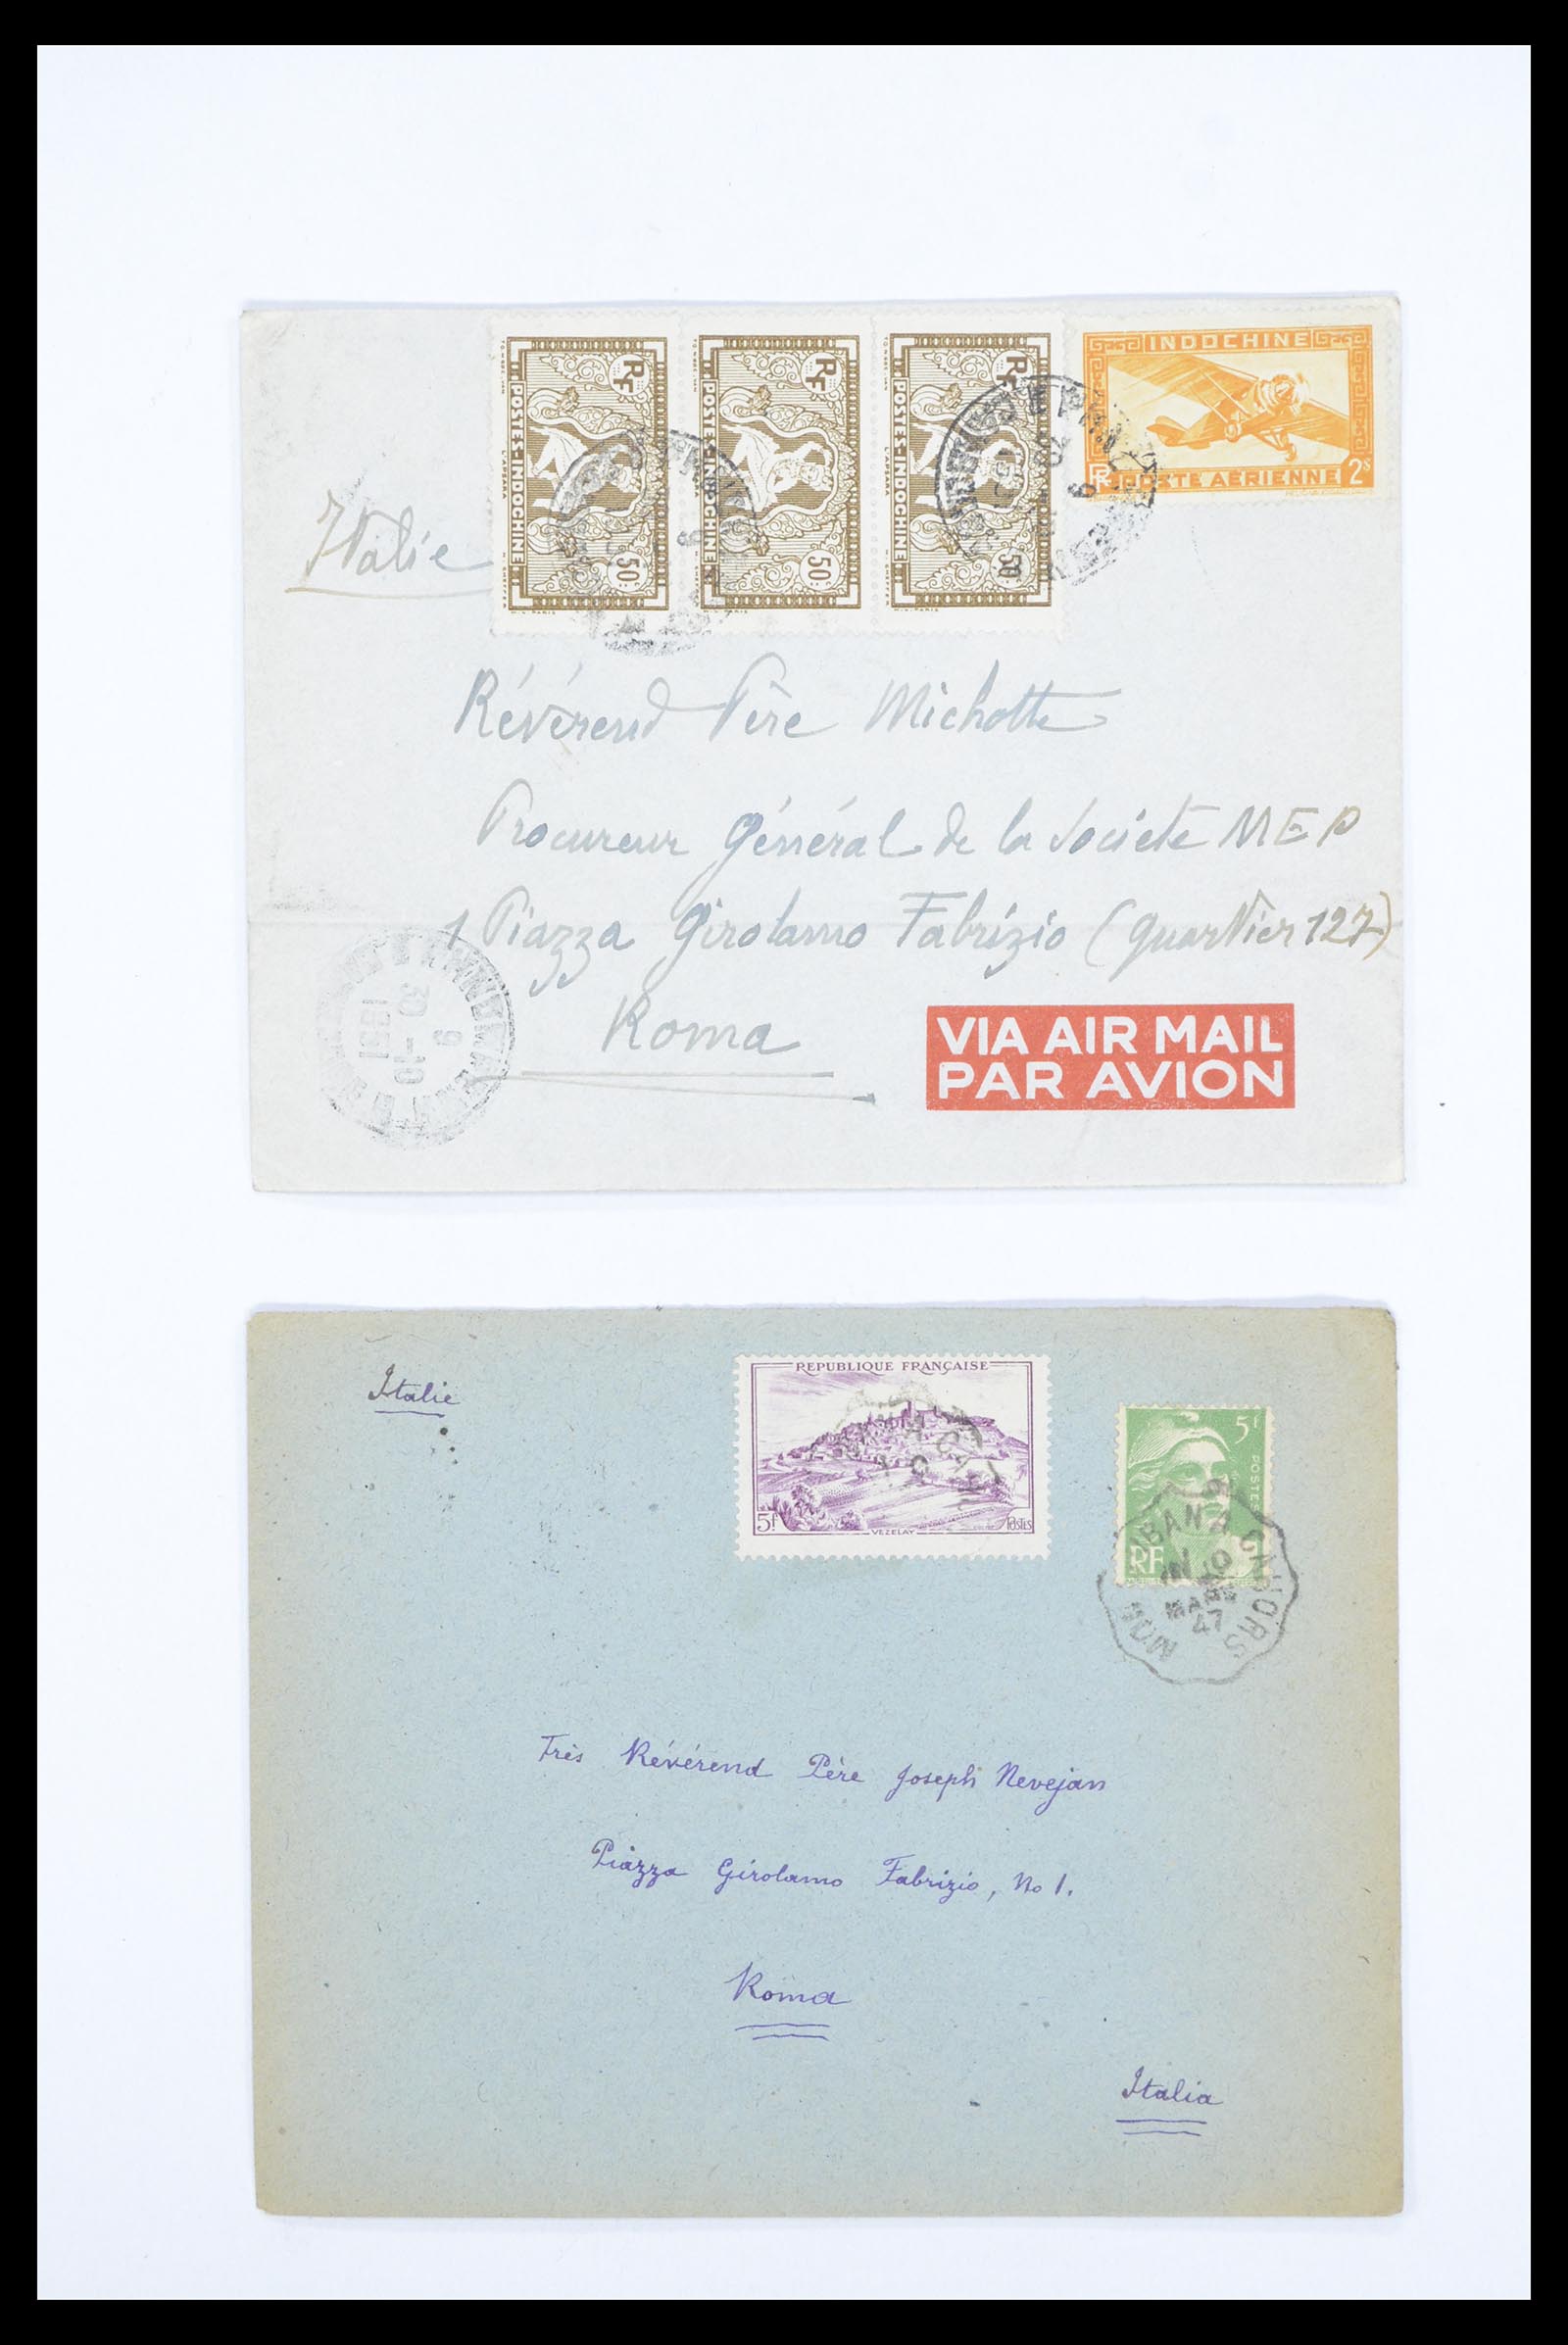 RF
POSTES-INDOCHINE
50c
RF
POSTES-INDOCHINE
50c
RF
POSTES-INDOCHINE
50c
INDOCHINE
RF POSTE AÉRIENNE 2$
Italie
Révérend Père Michotte
Procureur Général de la Société MEP
1 Piazza Girolamo Fabrizio (quartier 127)
Roma
VIA AIR MAIL
PAR AVION
6
10
1951
Italie
REPUBLIQUE FRANÇAISE
5f VEZELAY POSTES
5f
POSTES
RF
CAHORS
MARS
47
Très Révérend Père Joseph Nevejan
Piazza Girolamo Fabrizio, No 1.
Roma
Italia